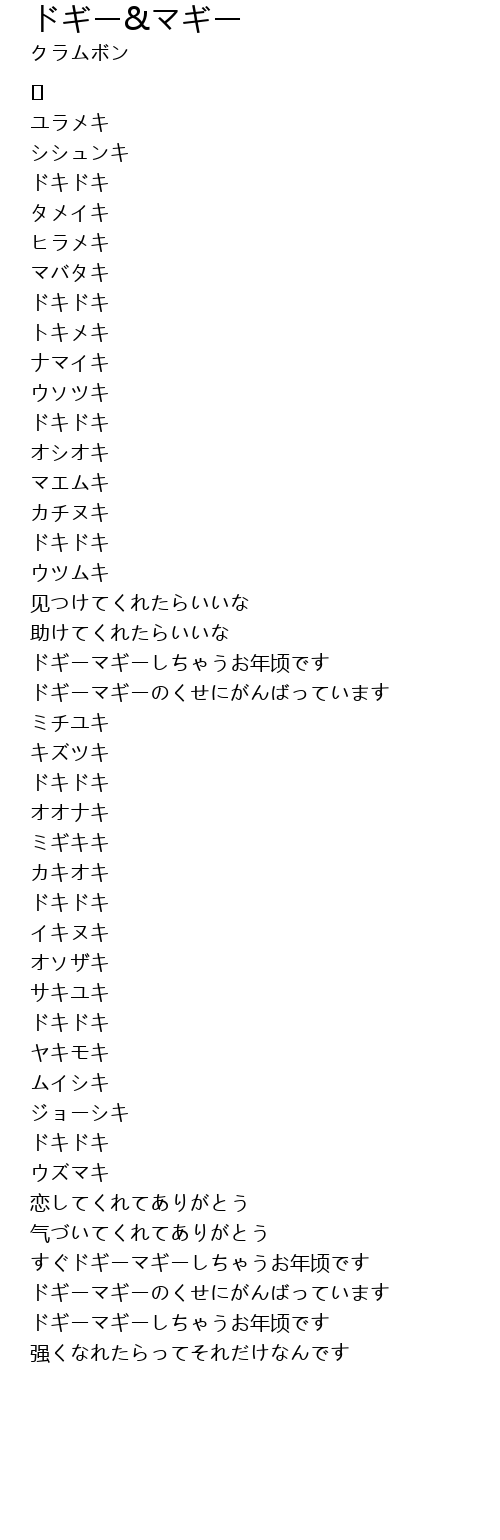 ドギー&マギー
クラムボン
ユラメキ
シシュンキ
ドキドキ
タメイキ
ヒラメキ
マバタキ
ドキドキ
トキメキ
ナマイキ
ウソツキ
ドキドキ
オシオキ
マエムキ
カチヌキ
ドキドキ
ウツムキ
见つけてくれたらいいな
助けてくれたらいいな
ドギーマギーしちゃうお年顷です
ドギーマギーのくせにがんばっています
ミチユキ
キズツキ
ドキドキ
オオナキ
ミギキキ
カキオキ
ドキドキ
イキヌキ
オソザキ
サキユキ
ドキドキ
ヤキモキ
ムイシキ
ジョーシキ
ドキドキ
ウズマキ
恋してくれてありがとう
气づいてくれてありがとう
すぐドギーマギーしちゃうお年顷です
ドギーマギーのくせにがんばっています
ドギーマギーしちゃうお年顷です
强くなれたらってそれだけなんです